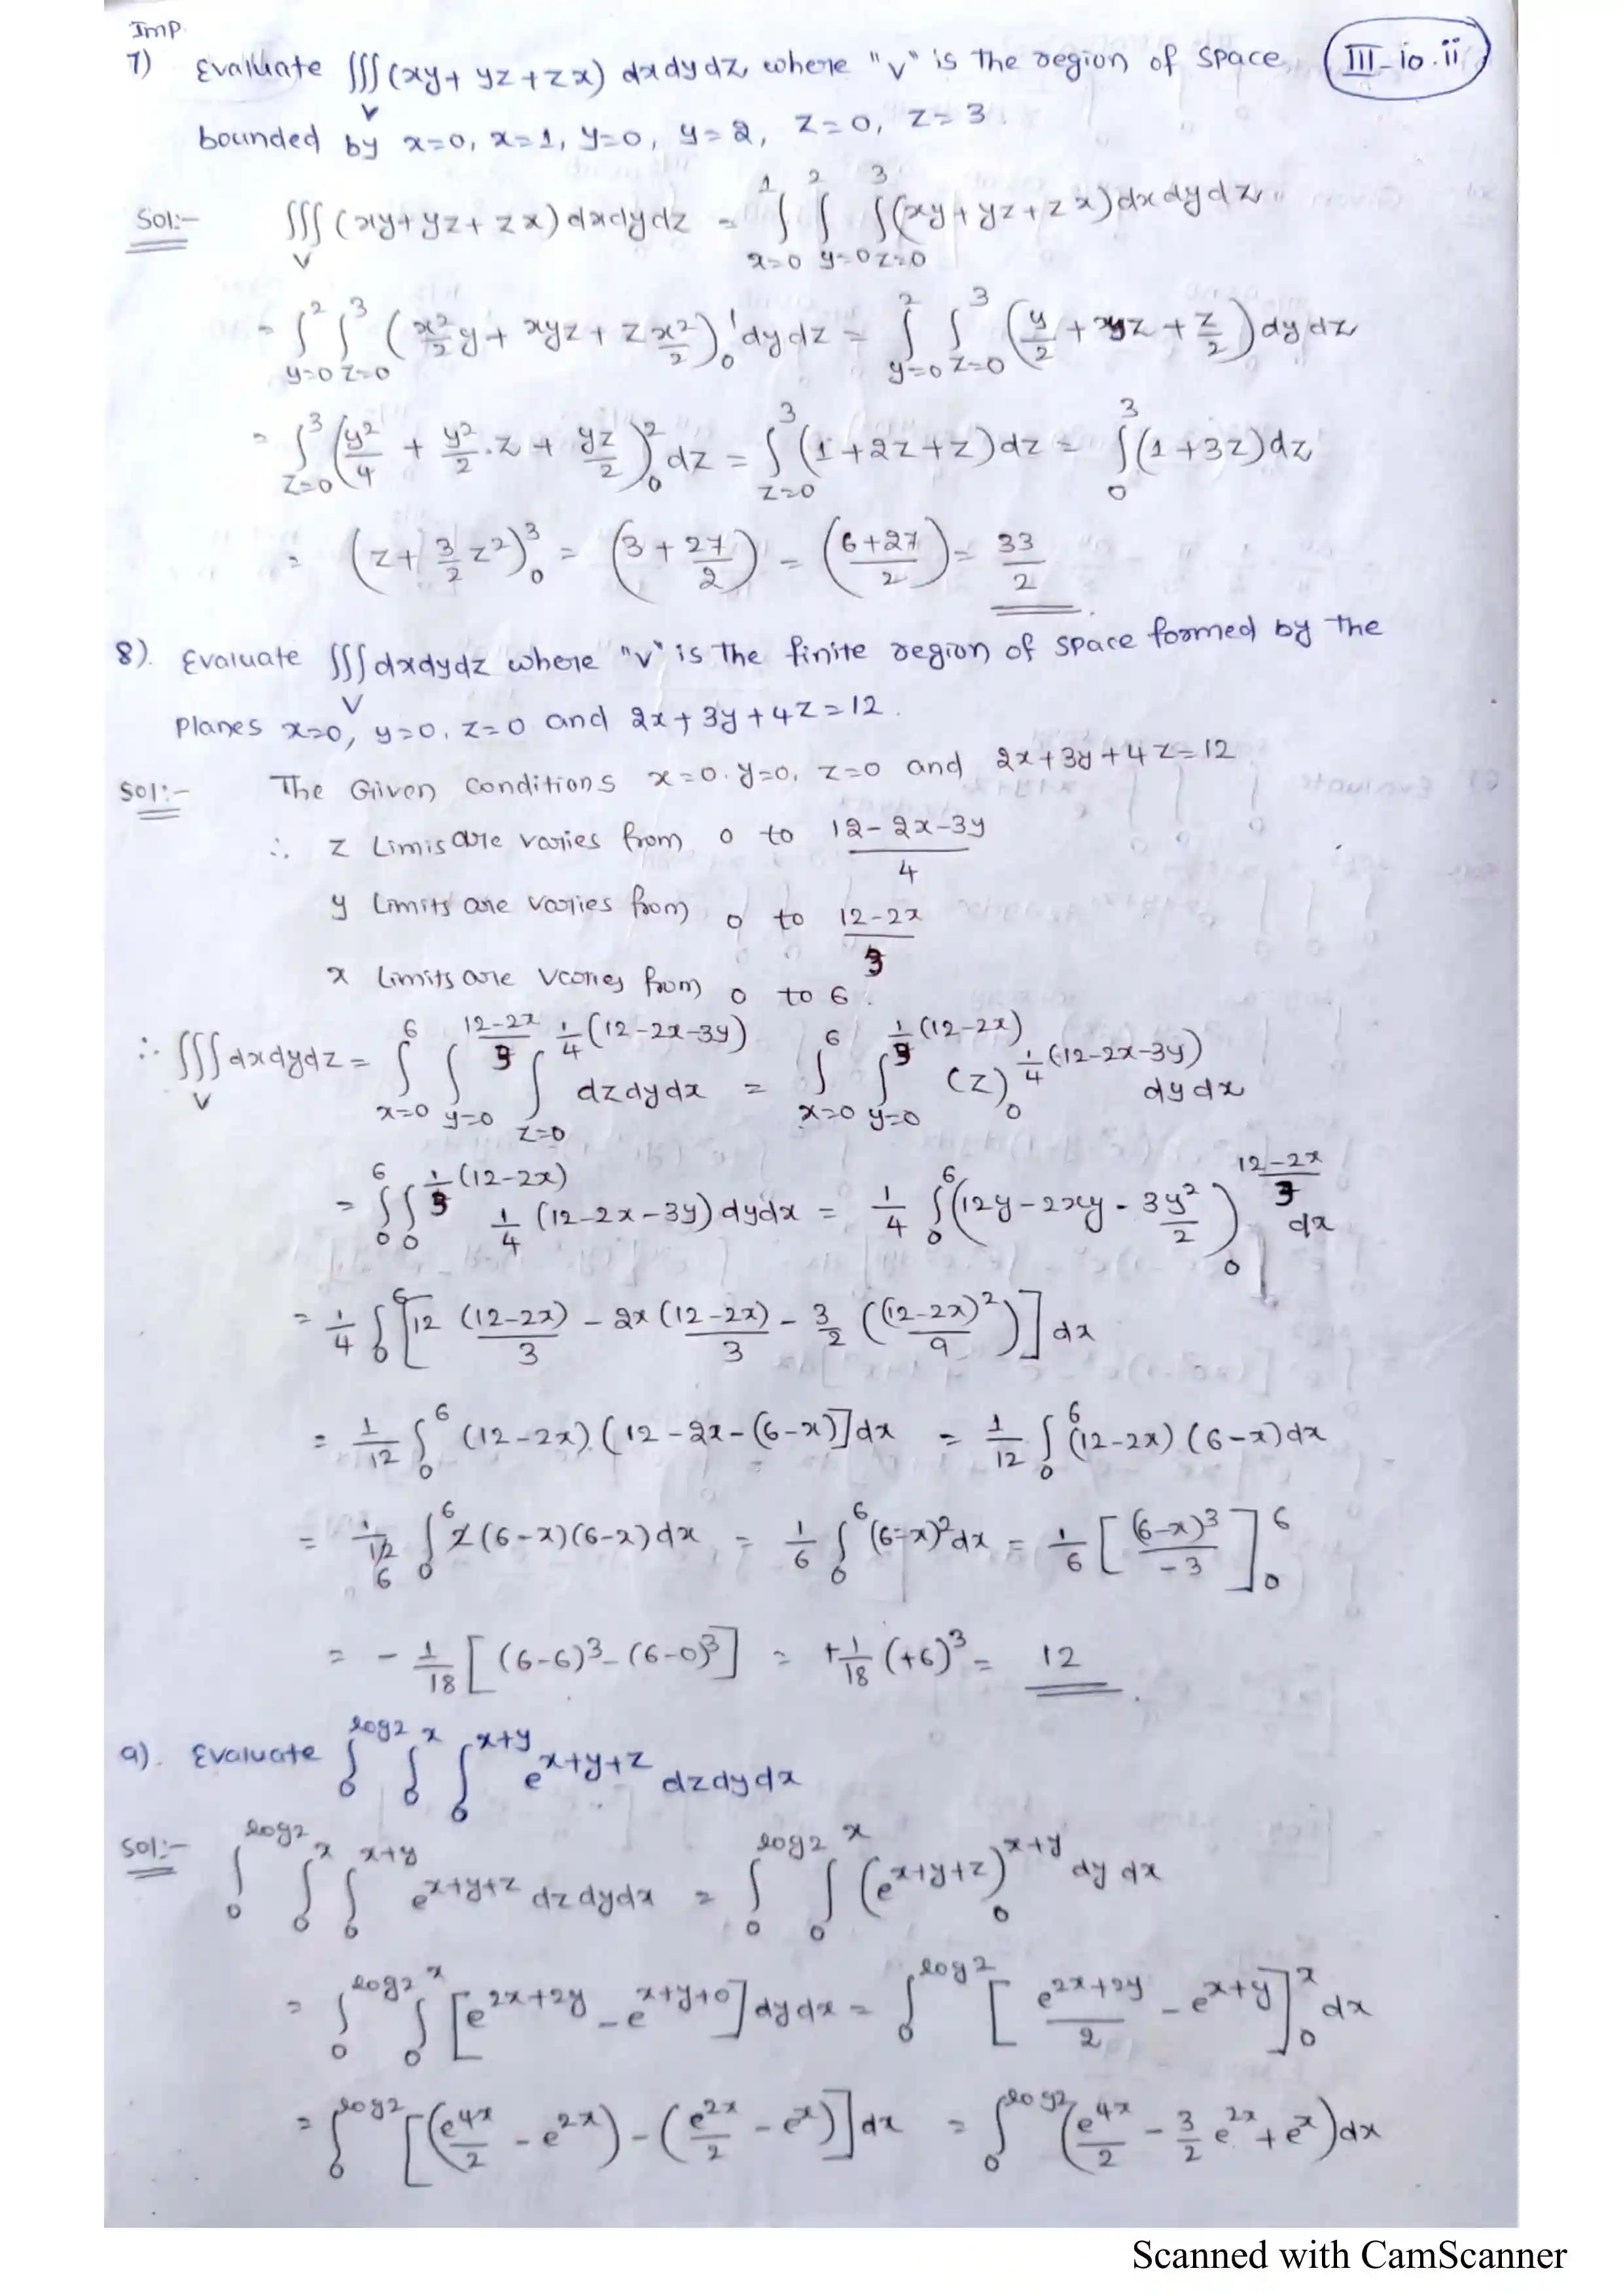 Imp.
7) Evaluate ∫∫∫_V (xy+yz+zx) dxdydz, where "v" is the region of space. III-10.ii
bounded by x=0, x=1, y=0, y=2, z=0, z=3.
Sol:- ∫∫∫_V (xy+yz+zx) dxdydz = ∫_{x=0}^{1} ∫_{y=0}^{2} ∫_{z=0}^{3} (xy+yz+zx) dxdydz
= ∫_{y=0}^{2} ∫_{z=0}^{3} (x²/2 y + xyz + z x²/2)_0^1 dydz = ∫_{y=0}^{2} ∫_{z=0}^{3} (y/2 + yz + z/2) dydz
= ∫_{z=0}^{3} (y²/4 + y²/2 .z + yz/2)_0^2 dz = ∫_{z=0}^{3} (1+2z+z) dz = ∫_0^3 (1+3z) dz
= (z + 3/2 z²)_0^3 = (3 + 27/2) = (6+27/2) = 33/2
8). Evaluate ∫∫∫_V dxdydz where "v" is the finite region of space formed by the
planes x=0, y=0, z=0 and 2x+3y+4z=12.
Sol:- The Given conditions x=0. y=0, z=0 and 2x+3y+4z=12
∴ z Limis are varies from 0 to 12-2x-3y/4
y Limits are varies from 0 to 12-2x/3
x Limits are varies from 0 to 6.
∴ ∫∫∫_V dxdydz = ∫_{x=0}^{6} ∫_{y=0}^{12-2x/3} ∫_{z=0}^{1/4(12-2x-3y)} dzdydx = ∫_{x=0}^{6} ∫_{y=0}^{1/3(12-2x)} (z)_0^{1/4(12-2x-3y)} dydx
= ∫_0^6 ∫_0^{1/3(12-2x)} 1/4 (12-2x-3y) dydx = 1/4 ∫_0^6 (12y-2xy-3y²/2)_0^{12-2x/3} dx
= 1/4 ∫_0^6 [12 (12-2x)/3 - 2x (12-2x)/3 - 3/2 ((12-2x)²/9)] dx
= 1/12 ∫_0^6 (12-2x) (12-2x-(6-x)] dx = 1/12 ∫_0^6 (12-2x)(6-x) dx
= 1/12 6 ∫_0^6 2(6-x)(6-x) dx = 1/6 ∫_0^6 (6-x)² dx = 1/6 [(6-x)³/-3]_0^6
= - 1/18 [(6-6)³-(6-0)³] = +1/18 (+6)³ = 12
9). Evaluate ∫_0^{log2} ∫_0^x ∫_0^{x+y} e^{x+y+z} dzdydx
Sol:- ∫_0^{log2} ∫_0^x ∫_0^{x+y} e^{x+y+z} dzdydx = ∫_0^{log2} ∫_0^x (e^{x+y+z})_0^{x+y} dy dx
= ∫_0^{log2} ∫_0^x [e^{2x+2y} - e^{x+y+0}] dydx = ∫_0^{log2} [e^{2x+2y}/2 - e^{x+y}]_0^x dx
= ∫_0^{log2} [(e^{4x}/2 - e^{2x}) - (e^{2x}/2 - e^x)] dx = ∫_0^{log2} (e^{4x}/2 - 3/2 e^{2x} + e^x) dx
Scanned with CamScanner